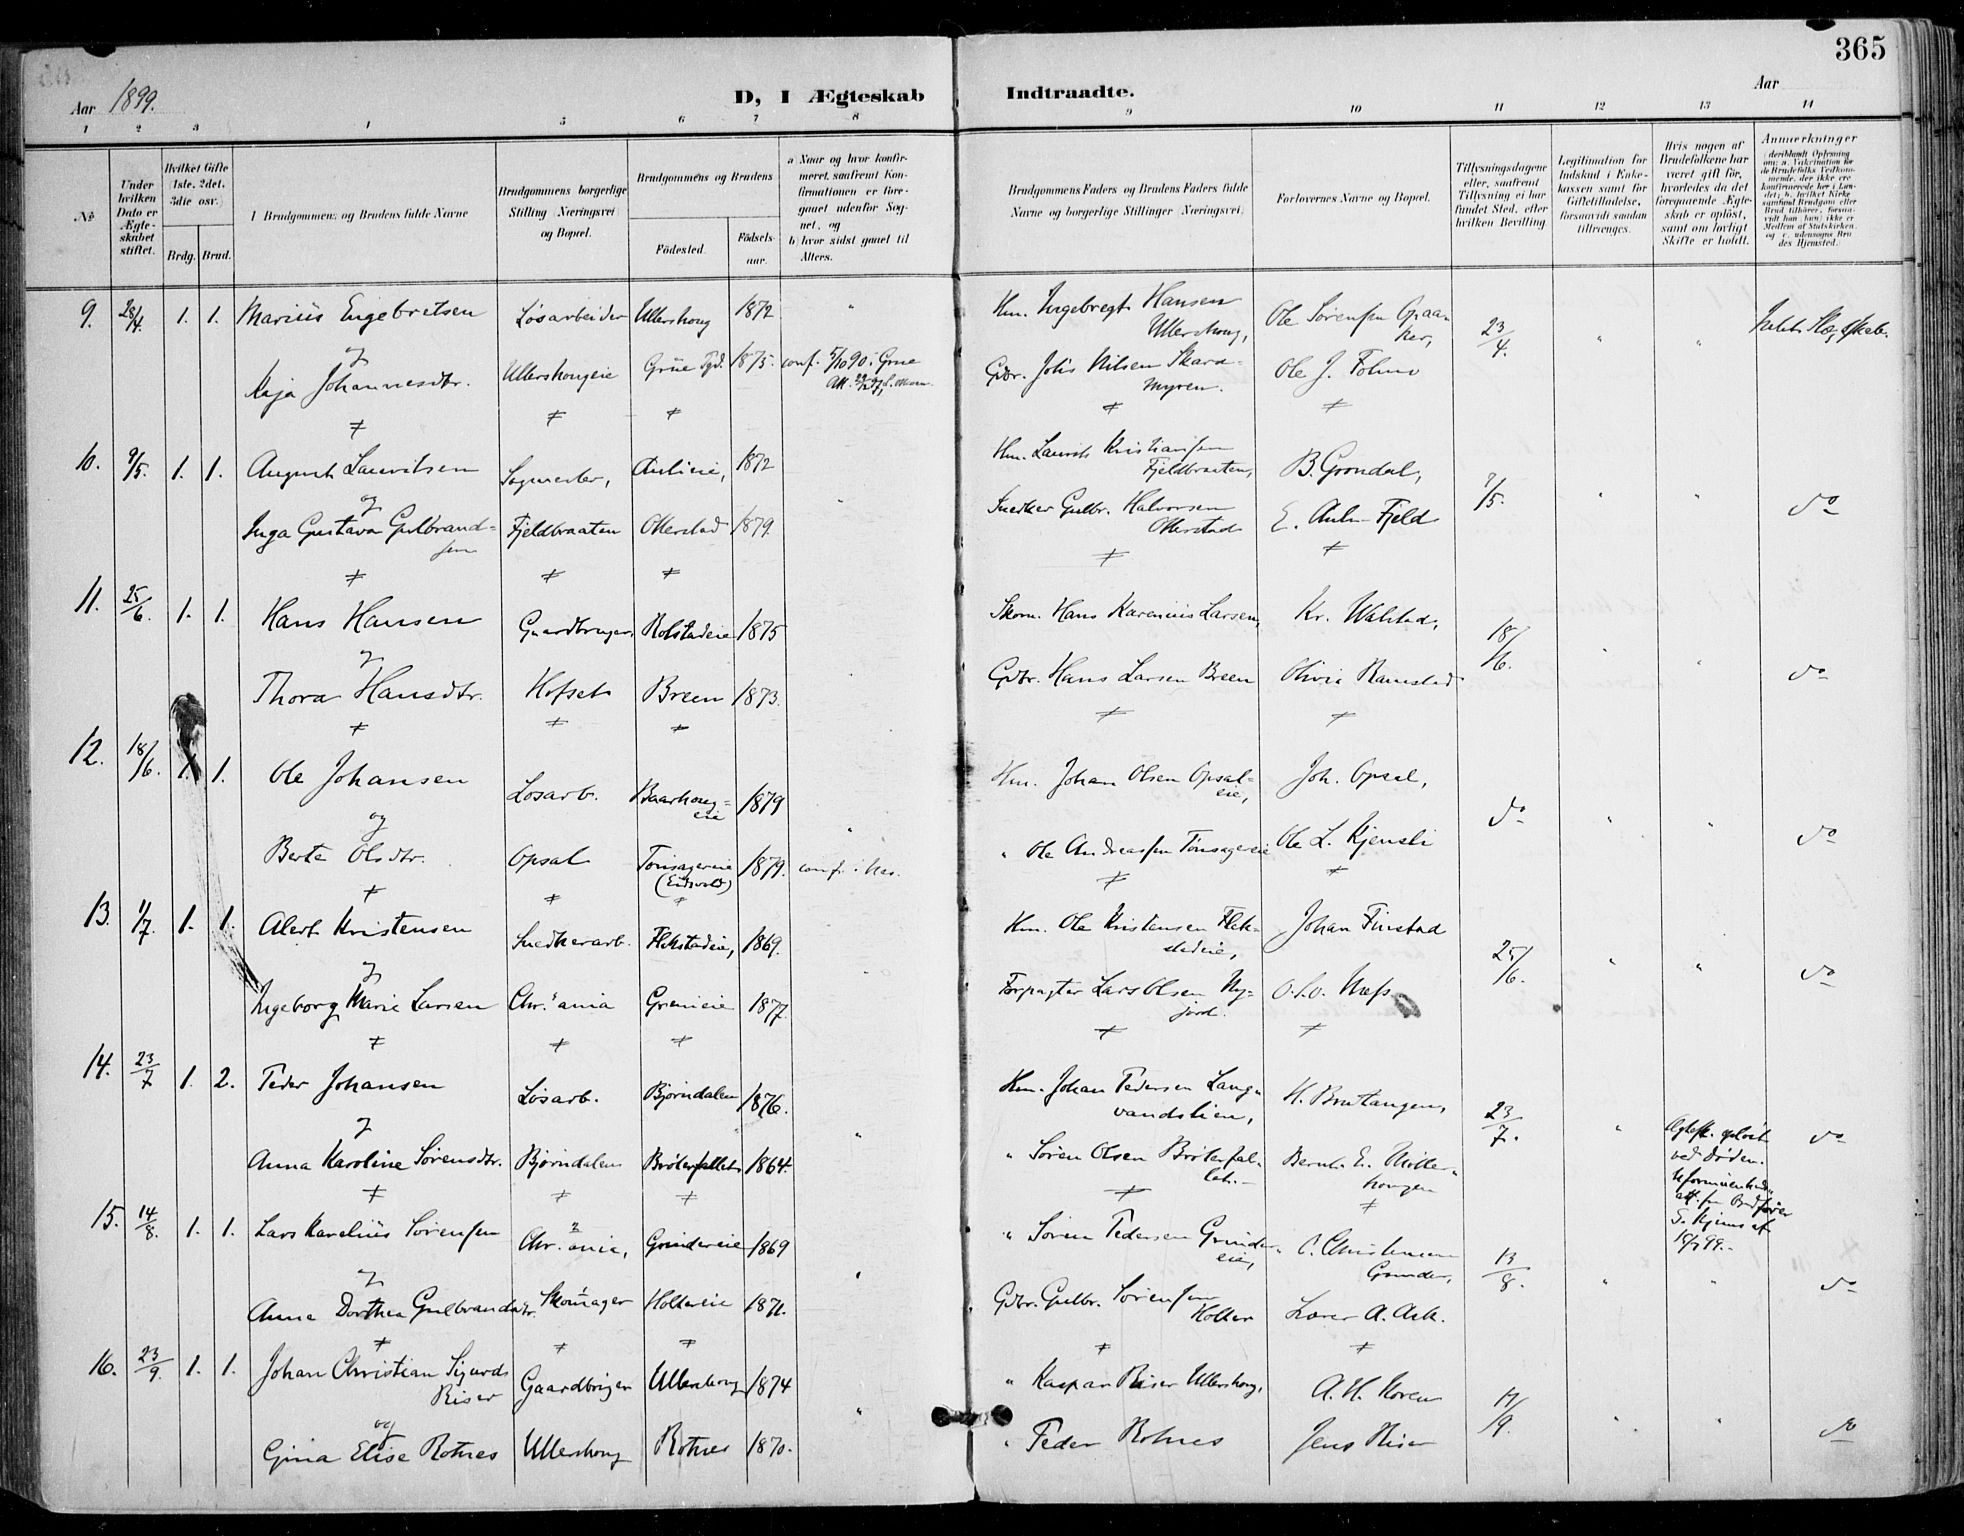 365
Aar 1899.
D, I Ægteskab Indtraadte.
Aar
1 2 3 4 5 6 7 8 9 10 11 12 13 14
No
Under hvilken Dato er Ægteskabet stiftet.
Hvilket Gifte (1ste, 2det, 3die osv.)
Brdg. Brud.
Brudgommens og Brudens fulde Navne
Brudgommens borgerlige Stilling (Næringsvei) og Bopæl.
Brudgommens og Brudens
Fødested.
Fødselsaar.
a Naar og hvor konfirmeret, saafremt Konfirmationen er foregaaet udenfor Sognet, og
b) hvor sidst gaaet til Alters.
Brudgommens Faders og Brudens Faders fulde Navne og borgerlige Stillinger (Næringsvei)
Forlovernes Navne og Bopæl.
Tillysningsdagene eller, saafremt Tillysning ei har fundet Sted, efter hvilken Bevilling.
Legitimation for Indskud i Enkekassen samt for Giftetilladelse, forsaavidt saadan tiltrænges.
Hvis nogen af Brudefolkene har været gift før, hvorledes da det foregaaende Ægteskab er opløst, samt om lovligt Skifte er holdt.
Anmerkninger
9. 28/4. 1. 1. Marius Engebretsen Løsarbeider Ullershoug 1872 " Hm. Ingebregt Hansen Ullershoug, Ole Sørensen Opaaker, 23/4. " " Intet Slægtskab.
og
Kaja Johannesdtr. Ullershougeie Grue Pgd. 1875. conf. 5/10 90 i Grue Gdbr. Johs Nilsen Skardmyren. Ole J. Folmo
10. 9/5. 1. 1. August Lauritsen Sagmester, Aulieie, 1872 Hm. Laurits Kristiansen Fjeldbraaten, B. Grøndal, 7/5. " " do
og
Inga Gustava Gulbrandsen Fjeldbraaten Ollerstad 1879. Snedker Gulbr. Halvorsen Ollerstad E. Fjeld
11. 25/6. 1. 1. Hans Hansen Gaardbruger, Rolstadeie 1875 Skom. Hans Karenius Larsen, Kr. Walstad, 18/6. " " do
og
Thora Hansdtr. Hofset Breen 1873. Gdbr. Hans Larsen Breen Olivia Ramstad
12. 18/6. 1. 1. Ole Johansen Løsarb. Baarhougeie 1879 Hm. Johan Olsen Opsaleie, Joh. Opsal, do " " do
og
Berte Olsdtr. Opsal Tønsagereie (Eidsvold) 1879. conf. i Nes. " Ole Andreassen Tønsagereie Ole L. Kjensli
13. 1/7. 1. 1. Alert Kristensen Snedkerarb. Flekstadeie, 1869. Hm. Ole Kristensen Flekstadeie, Johan Finstad 25/6. " " do
og
Ingeborg Marie Larsen Chr.ania Grenieie 1877. Forpagter Lars Olsen Nyjord. O. L. O. Næss
14. 23/7 1. 2. Peder Johansen Løsarb. Bjørndalen 1876. Hm. Johan Pedersen Langvandslien, H. Brutangen, 23/7. " Ægtesk. opløst ved Døden. do
og
Anna Karoline Sørensdtr. Bjørndalen Brøterfallet 1864. " Søren Olsen Brøterfallet. Bernh. E. Møllerhougen
15. 14/8. 1. 1. Lars Karelius Sørensen Chr.ania, Grindereie 1869 " Søren Pedersen Grindereie, C. Christensen Grinder, 13/8. " " do
og
Anna Dorthea Gulbrandsdtr. Skomager Holtereie 1871. Gdbr. Gulbr. Sørensen Holter A. Ask.
16. 23/9. 1. 1. Johan Christian Sigurd Riser Gaardbruger Ullershoug 1874 " Kaspar Riser Ullershoug, A. H. Horen 17/9. " " do
og
Gina Elise Rotnes Ullershoug Rotnes 1870. " Peder Rotnes Jens Riser